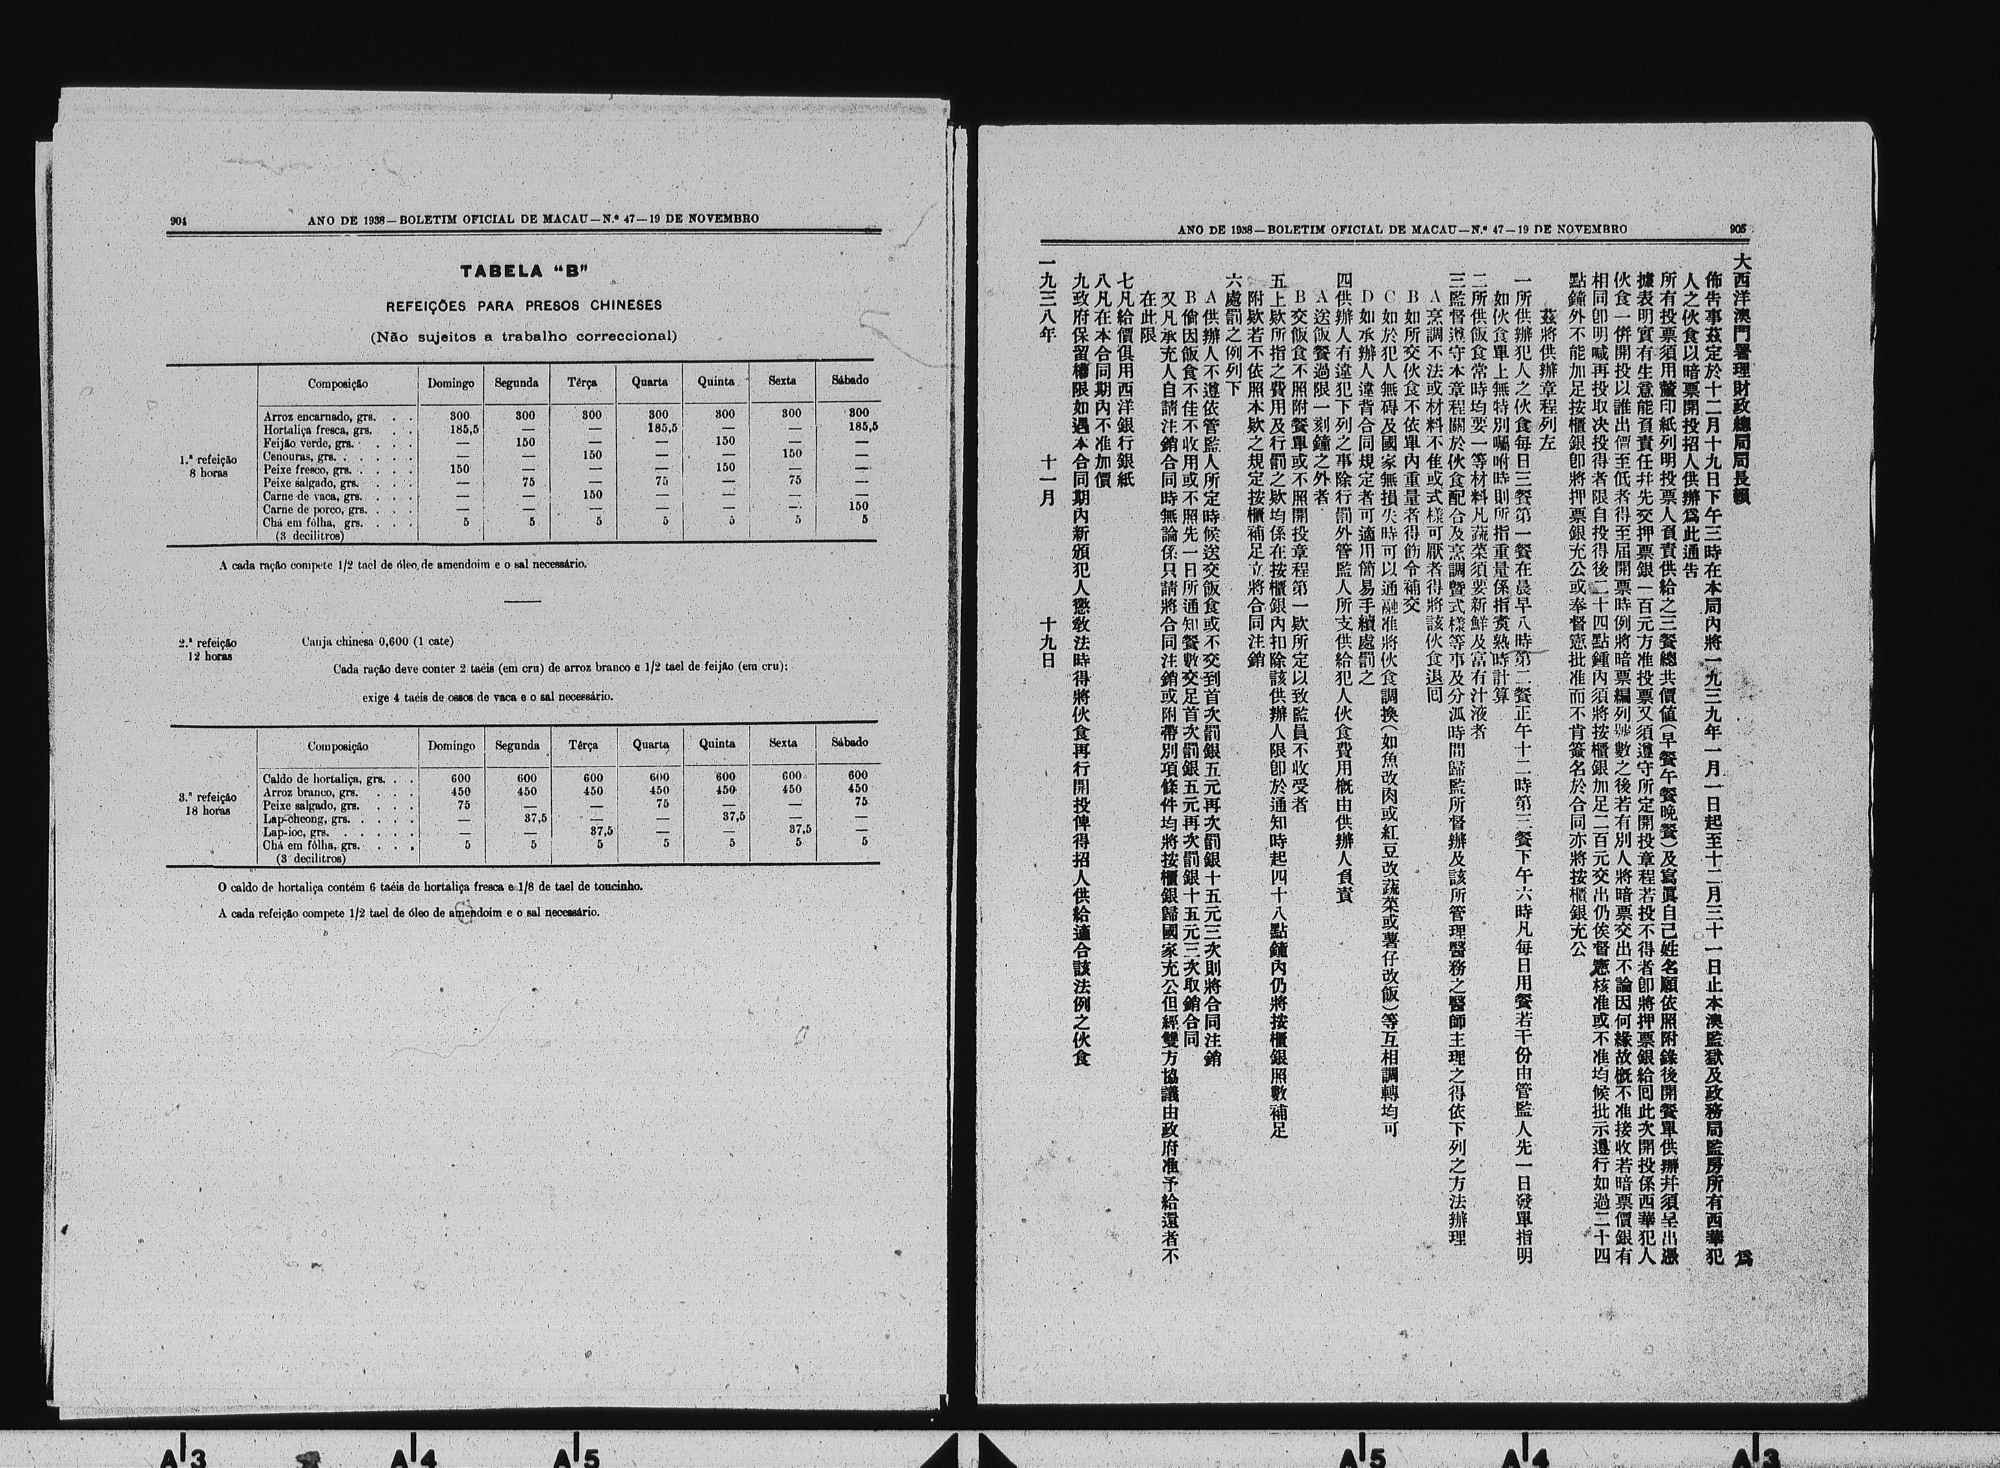 904 ANO DE 1938 — BOLETIM OFICIAL DE MACAU — N.º 47 — 19 DE NOVEMBRO
TABELA "B"
REFEIÇÕES PARA PRESOS CHINESES
(Não sujeitos a trabalho correccional)
Composição Domingo Segunda Têrça Quarta Quinta Sexta Sábado
1.ª refeição
8 horas
Arroz encarnado, grs. . . 300 300 300 300 300 300 300
Hortaliça fresca, grs. . . 185,5 — — 185,5 — — 185,5
Feijão verde, grs. . . . . — 150 — — 150 — —
Cenouras, grs. . . . . . — — 150 — — 150 —
Peixe fresco, grs. . . . . 150 — — — 150 — —
Peixe salgado, grs. . . . — 75 — 75 — 75 —
Carne de vaca, grs. . . . — — 150 — — — —
Carne de porco, grs. . . . — — — — — — 150
Chá em fôlha, grs. . . . 5 5 5 5 5 5 5
(3 decilitros)
A cada ração compete 1/2 tael de óleo de amendoim e o sal necessário.
2.ª refeição
12 horas
Canja chinesa 0,600 (1 cate)
Cada ração deve conter 2 taéis (em cru) de arroz branco e 1/2 tael de feijão (em cru);
exige 4 taéis de ossos de vaca e o sal necessário.
Composição Domingo Segunda Têrça Quarta Quinta Sexta Sábado
3.ª refeição
18 horas
Caldo de hortaliça, grs. . . 600 600 600 600 600 600 600
Arroz branco, grs. . . . 450 450 450 450 450 450 450
Peixe salgado, grs. . . . 75 — — 75 — — 75
Lap-cheong, grs. . . . . — 37,5 — — 37,5 — —
Lap-ioc, grs. . . . . . . — — 37,5 — — 37,5 —
Chá em fôlha, grs. . . . 5 5 5 5 5 5 5
(3 decilitros)
O caldo de hortaliça contém 6 taéis de hortaliça fresca e 1/8 de tael de toucinho.
A cada refeição compete 1/2 tael de óleo de amendoim e o sal necessário.
ANO DE 1938 — BOLETIM OFICIAL DE MACAU — N.º 47 — 19 DE NOVEMBRO 905
大西洋澳門署理財政總局局長額 爲
佈告事茲定於十二月十九日下午三時在本局內將一九三九年一月一日起至十二月三十一日止本澳監獄及政務局監房所有西華犯
人之伙食以暗票開投招人供辦爲此通告
所有投票須用釐印紙列明投票人負責供給之三餐總共價值(早餐午餐晚餐)及寫眞自己姓名願依照附錄後開餐單供辦幷須呈出憑
據表明實有生意能負責任幷先交押票銀一百元方准投票又須遵守所定開投章程若投不得者卽將押票銀給囘此次開投係西華犯人
伙食一併開投以誰出價至低者得至屆開票時例將暗票編列號數之後若有別人將暗票交出不論因何緣故槪不准接收若暗票價銀有
相同卽明喊再投取决投得者限自投得後二十四點鍾內須將按櫃銀加足二百元交出仍俟督憲核准或不准均候批示遵行如過二十四
點鐘外不能加足按櫃銀卽將押票銀充公或奉督憲批准而不肯簽名於合同亦將按櫃銀充公
茲將供辦章程列左
一所供辦犯人之伙食每日三餐第一餐在晨早八時第二餐正午十二時第三餐下午六時凡每日用餐若干份由管監人先一日發單指明
如伙食單上無特別囑咐時則所指重量係指煑熟時計算
二所供飯食常時均要一等材料凡蔬菜須要新鮮及富有汁液者
三監督遵守本章程關於伙食配合及烹調曁式樣等事及分派時間歸監所督辦及該所管理醫務之醫師主理之得依下列之方法辦理
A烹調不法或材料不佳或式樣可厭者得將該伙食退囘
B如所交伙食不依單內重量者得飭令補交
C如於犯人無碍及國家無損失時可以通融准將伙食調換(如魚改肉或紅豆改蔬菜或薯仔改飯)等互相調轉均可
D如承辦人違背合同規定者可適用簡易手續處罰之
四供辦人有違犯下列之事除行罰外管監人所支供給犯人伙食費用槪由供辦人負責
A送飯餐過限一刻鐘之外者
B交飯食不照附餐單或不照開投章程第一欵所定以致監員不收受者
五上欵所指之費用及行罰之欵均係在按櫃銀內扣除該供辦人限卽於通知時起四十八點鐘內仍將按櫃銀照數補足
附欵若不依照本欵之規定按櫃補足立將合同注銷
六處罰之例列下
A供辦人不遵依管監人所定時候送交飯食或不交到首次罰銀五元再次罰銀十五元三次則將合同注銷
B倘因飯食不佳不收用或不照先一日所通知餐數交足首次罰銀五元再次罰銀十五元三次取銷合同
又凡承充人自請注銷合同時無論係只請將合同注銷或附帶別項條件均將按櫃銀歸國家充公但經雙方協議由政府准予給還者不
在此限
七凡給價俱用西洋銀行銀紙
八凡在本合同期內不准加價
九政府保留權限如遇本合同期內新頒犯人懲敎法時得將伙食再行開投俾得招人供給適合該法例之伙食
一九三八年 十一月 十九日
A3 A4 A5 A5 A4 A3